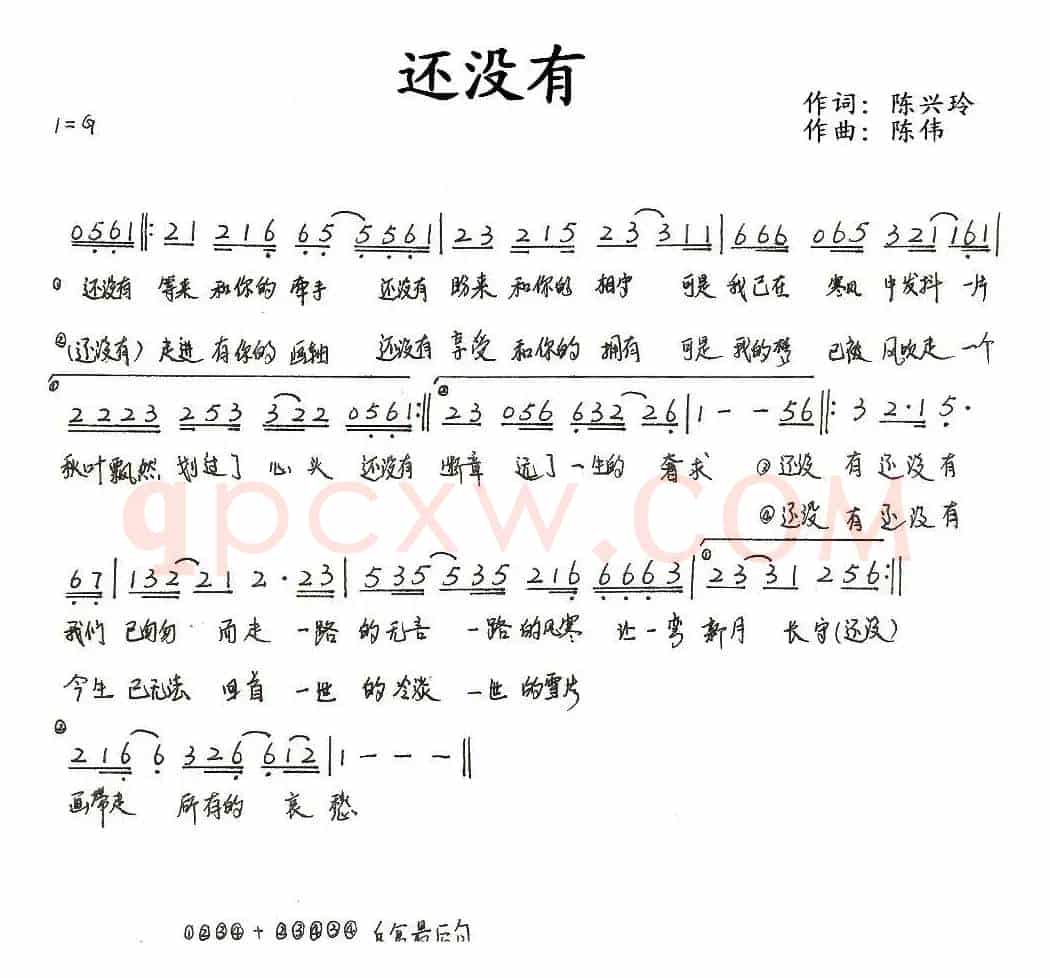 还没有
作词：陈兴玲
1=G
作曲：陈伟
0561‖: 21 216 65 5561 | 23 215 23 311 | 666 065 321 161 |
① 还没有 等来 和你的 牵手 还没有 盼来 和你的 相守 可是 我已在 寒风 中发抖 一片
②(还没有) 走进 有你的 画轴 还没有 享受 和你的 拥有 可是 我的梦 已被 风吹走 一个
① ②
2223 253 322 0561 :‖ 23 056 632 26 | 1 - - 56 ‖: 3 2·1 5·
秋叶飘然 划过了 心头 还没有 断章 远了 一生的 奢求 ③还没 有 还没有
qpcxw.COM
④还没 有 还没有
①
67 | 132 21 2·23 | 535 535 216 6663 | 23 31 256 :‖
我们 已匆匆 而走 一路 的无言 一路 的风寒 让一弯 新月 长守(还没)
今生 已无法 回首 一世 的冷淡 一世 的雪片
②
216 6 326 612 | 1 - - - ‖
画带走 所有的 哀愁
①②③④ + ②③④③④ 反复最后句